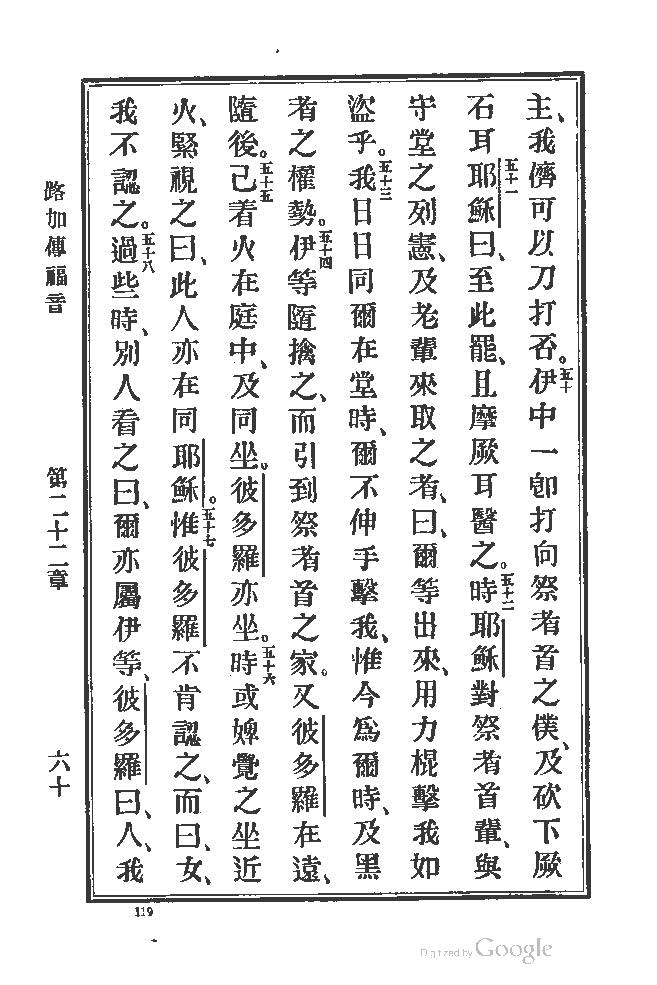 主、我儕可以刀打否。五十伊中一卽打向祭者首之僕、及砍下厥
石耳五十一耶穌曰、至此罷、且摩厥耳醫之。五十二時耶穌對祭者首輩、與
守堂之列憲、及老輩來取之者、曰、爾等出來、用力棍擊我如
盜乎。五十三我日日同爾在堂時、爾不伸手擊我、惟今為爾時、及黑
者之權勢。五十四伊等隨擒之、而引到祭者首之家。又彼多羅在遠、
隨後。五十五己着火在庭中、及同坐。彼多羅亦坐。五十六時或婢覺之坐近
火、緊視之曰、此人亦在同耶穌。五十七惟彼多羅不肯認之、而曰、女、
我不認之。五十八過些時、別人看之曰、爾亦屬伊等、彼多羅曰、人、我
路加傳福音 第二十二章 六十
119
Digitized by Google